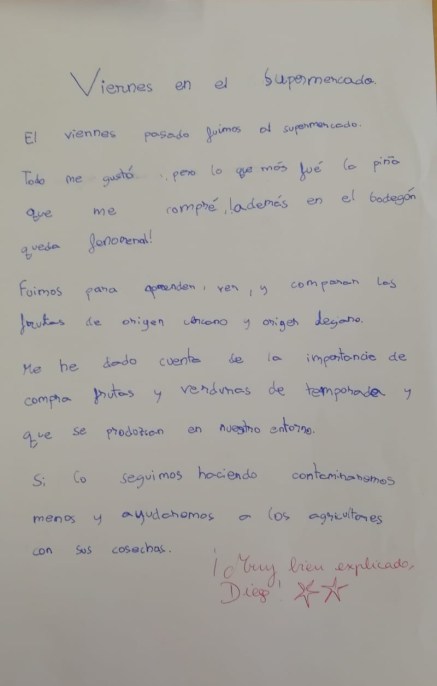 Viernes en el supermercado.
El viernes pasado fuimos al supermercado.
Todo me gustó, pero lo que más fué la piña
que me compré, ¡además en el bodegón
queda fenomenal!
Fuimos para aprender, ver, y comparar las
frutas de origen cercano y origen lejano.
Me he dado cuenta de la importancia de
compra frutas y verduras de temporada y
que se produzcan en nuestro entorno.
Si lo seguimos haciendo contaminaremos
menos y ayudaremos a los agricultores
con sus cosechas.
¡Muy bien explicado,
Diego!